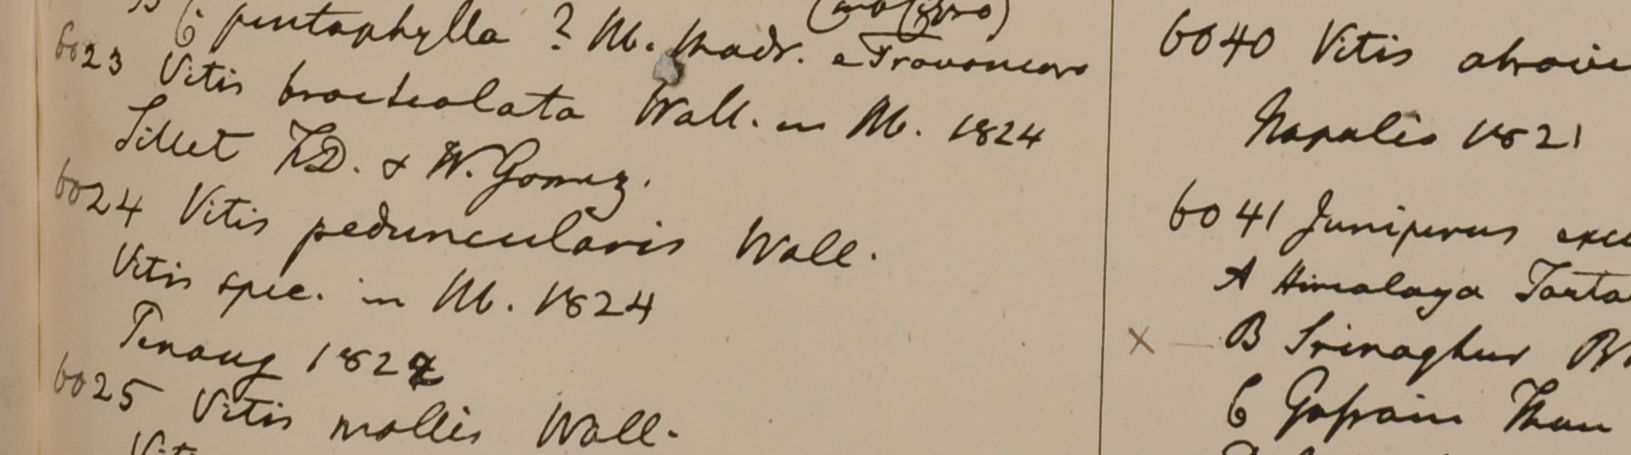 C pentaphylla ? Hb. Madr. e Travancore
6023 Vitis bracteolata Wall. in Hb. 1824
Sillet F.D. & W. Gomez.
6024 Vitis peduncularis Wall.
Vitis spec. in Hb. 1824
Penang 1822
6025 Vitis mollis Wall.
6040 Vitis
Napalia 1821
6041 Juniperus exce
A Himalaya Tarta
x B Srinaghur
C Gossain Than